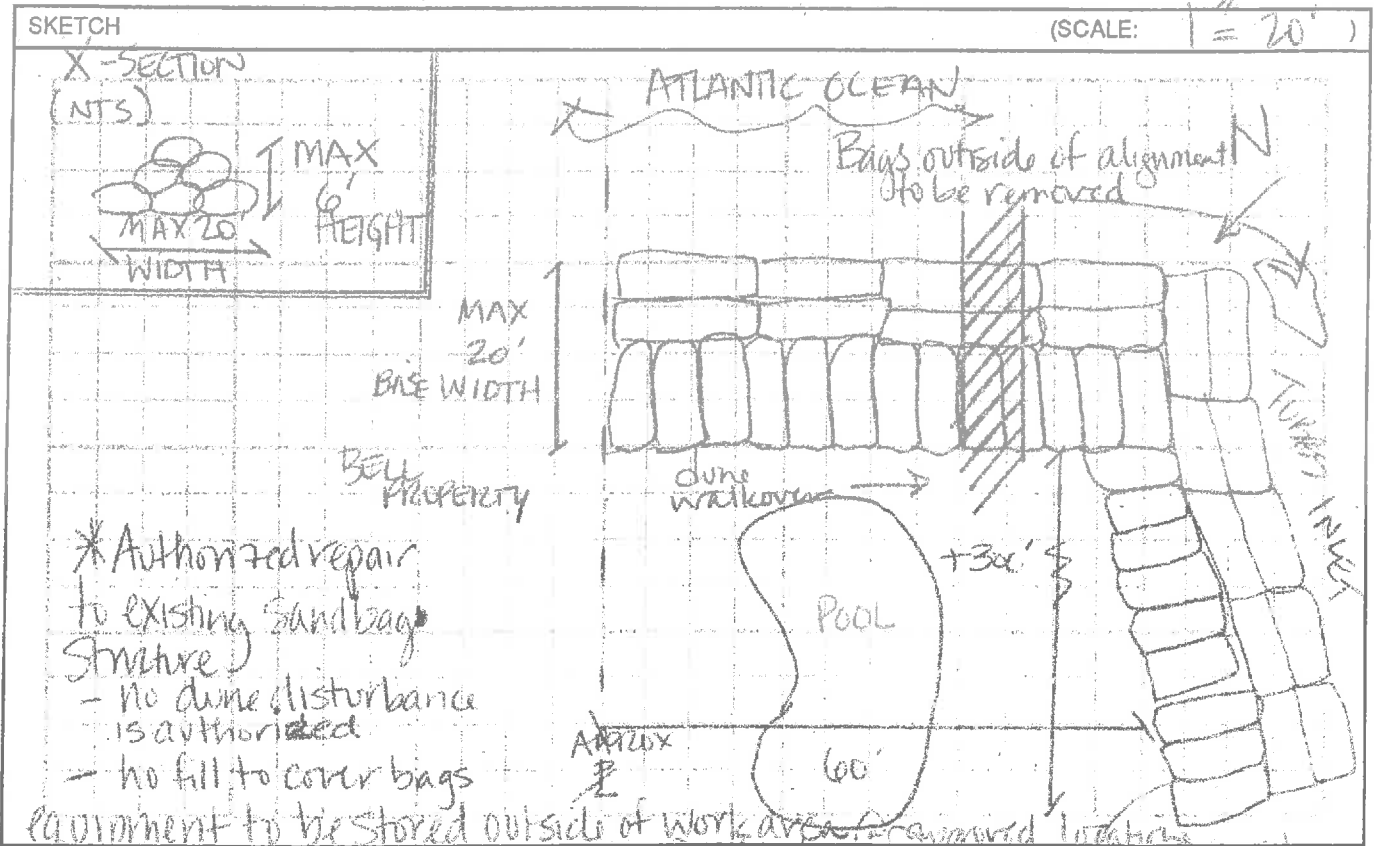 SKETCH
(SCALE: 1" = 20' )
X-SECTION
(NTS)
MAX
6'
HEIGHT
MAX 20'
WIDTH
ATLANTIC OCEAN
N
Bags outside of alignment
to be removed
MAX
20'
BASE WIDTH
BELL
PROPERTY
dune
walkover
POOL
60'
INLET
APPROX
* Authorized repair
to existing sandbag
structure
- no dune disturbance
is authorized
- no fill to cover bags
equipment to be stored outside of work area